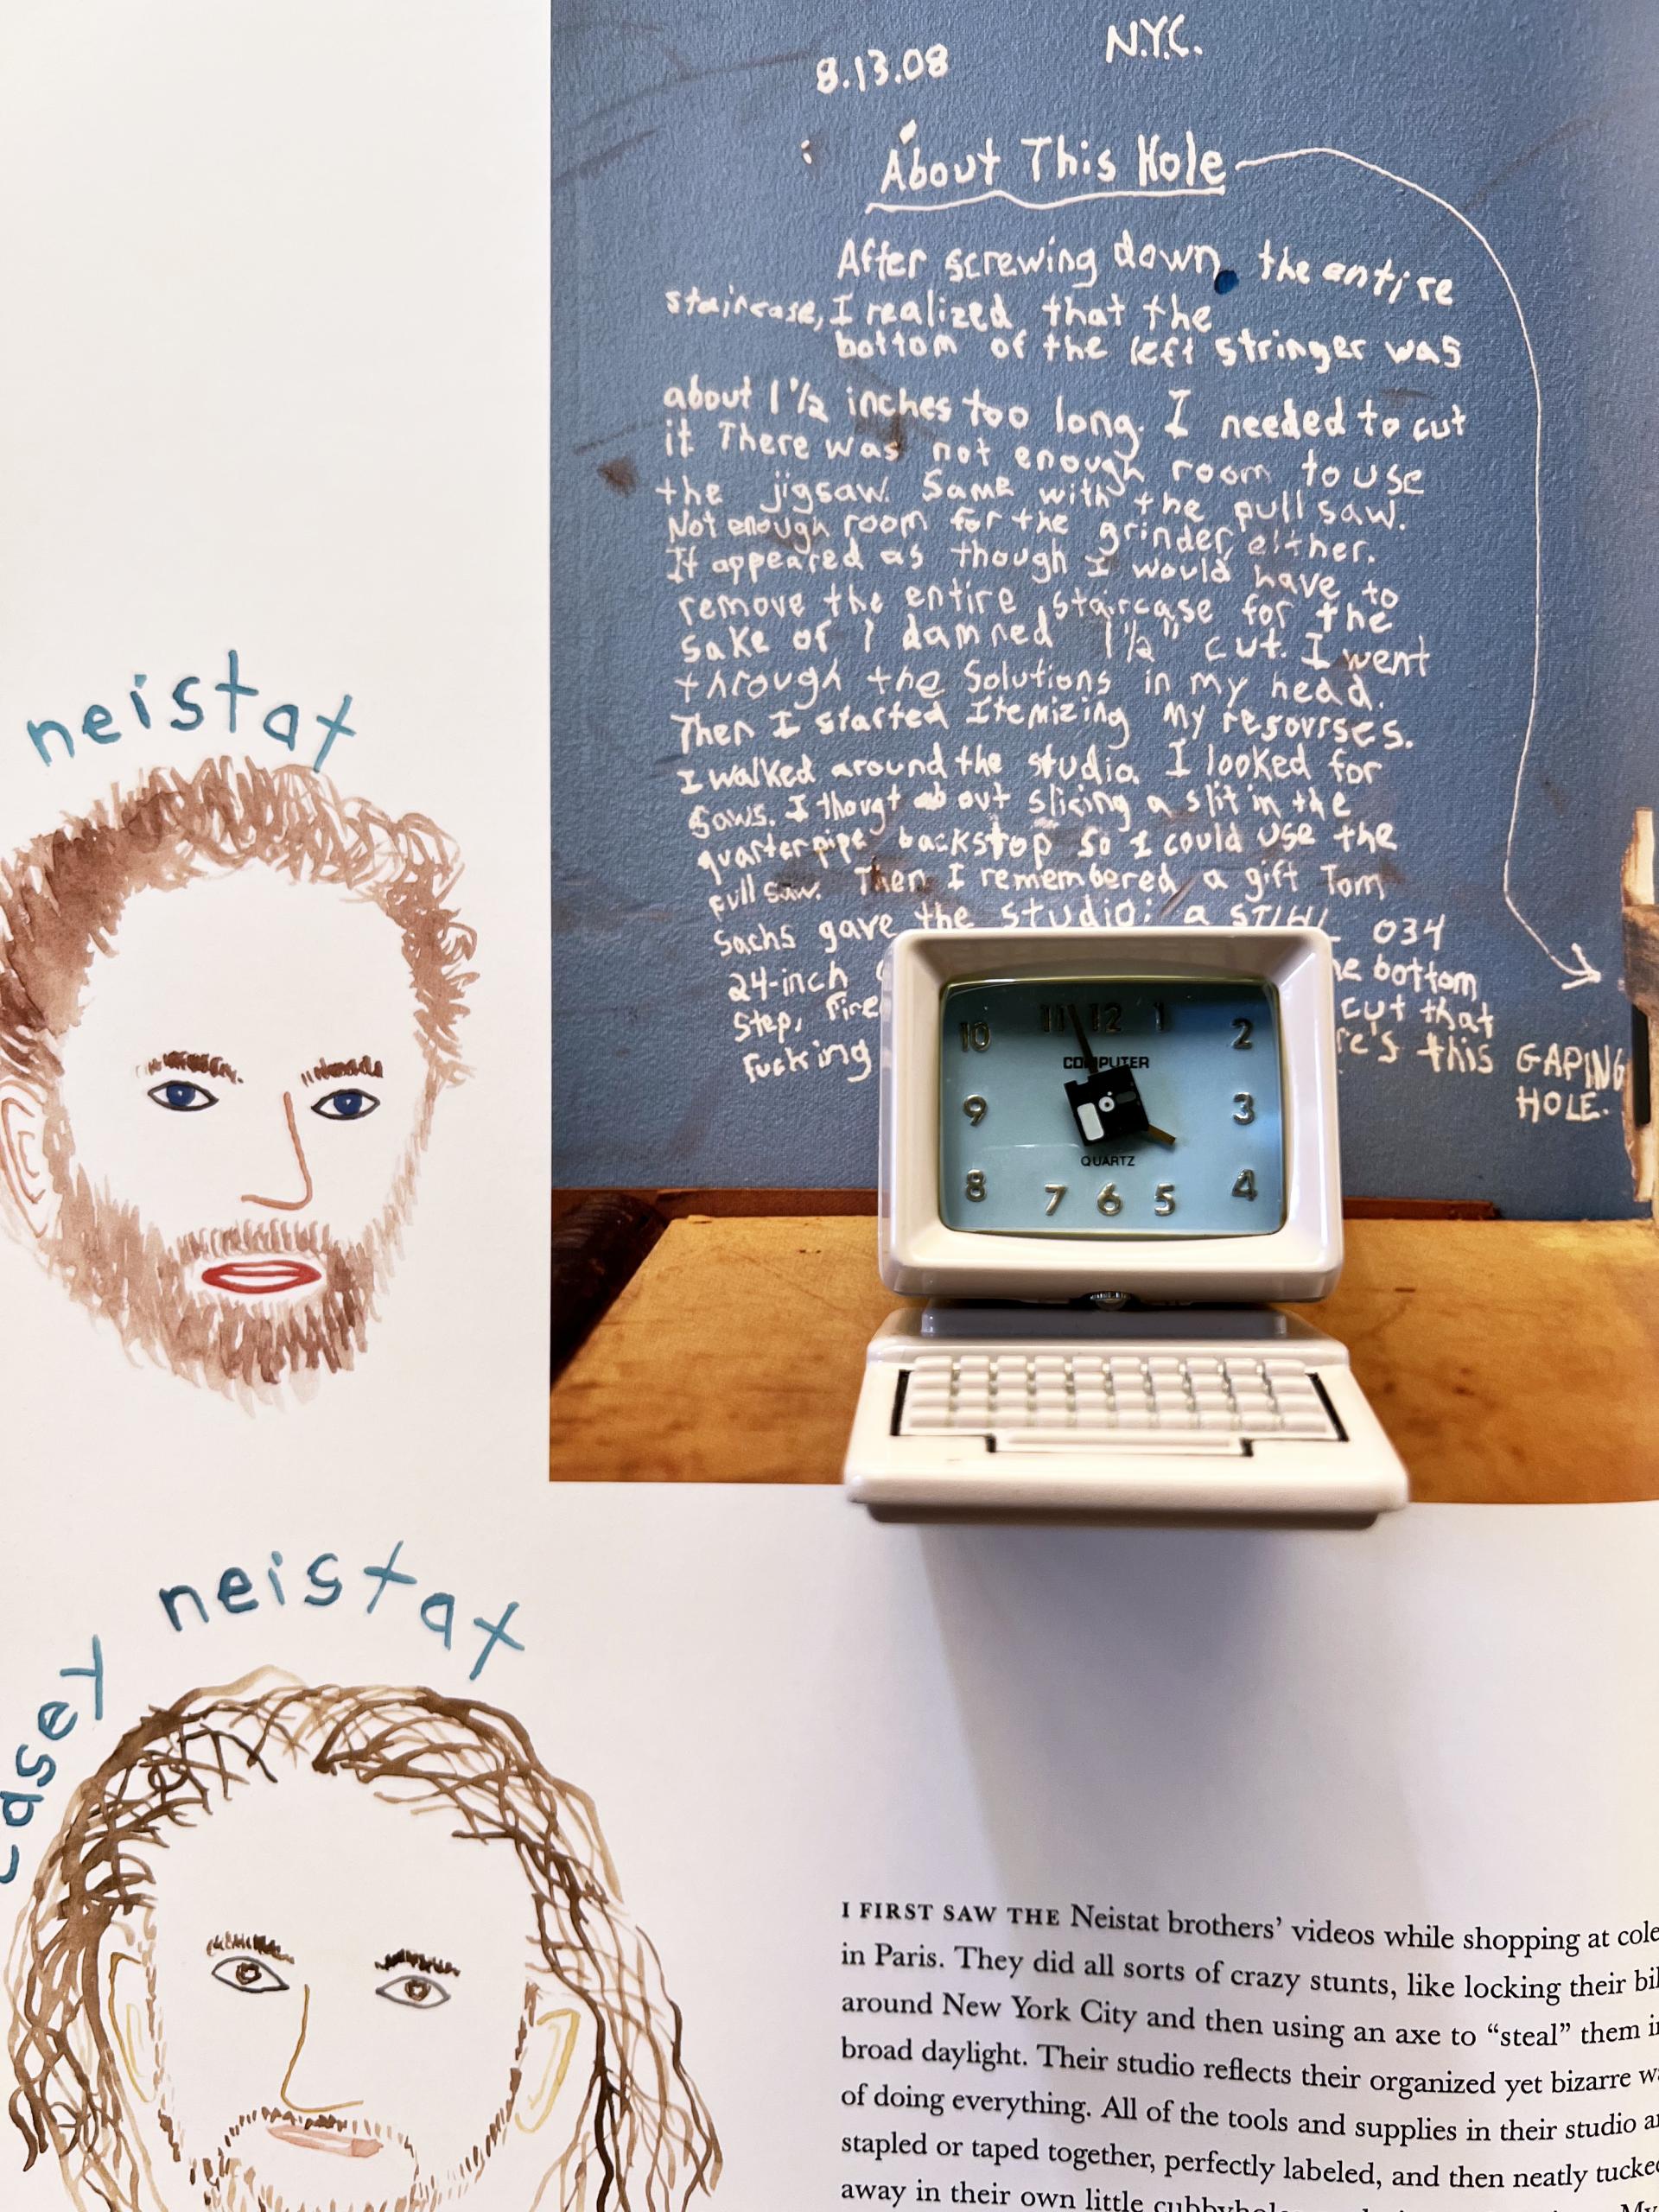 8.13.08 N.Y.C.
About This Hole
After screwing down the entire
staircase, I realized that the
bottom of the left stringer was
about 1 1/2 inches too long. I needed to cut
it. There was not enough room to use
the jigsaw. Same with the pull saw.
Not enough room for the grinder, either.
It appeared as though I would have to
remove the entire staircase for the
sake of 1 damned 1 1/2" cut. I went
through the solutions in my head.
Then I started Itemizing my resourses.
I walked around the studio. I looked for
saws. I thougt about slicing a slit in the
quarterpipe backstop so I could use the
pull saw. Then I remembered a gift Tom
Sachs gave the studio: a STIHL 034
24-inch bottom
step, fire cut that
fucking this GAPING
HOLE.
neistat
11 12 1
10 2
COMPUTER
9 3
QUARTZ
8 4
7 6 5
casey neistat
I FIRST SAW THE Neistat brothers’ videos while shopping at cole
in Paris. They did all sorts of crazy stunts, like locking their
around New York City and then using an axe to “steal” them
broad daylight. Their studio reflects their organized yet bizarre
of doing everything. All of the tools and supplies in their studio
stapled or taped together, perfectly labeled, and then neatly tucked
away in their own little